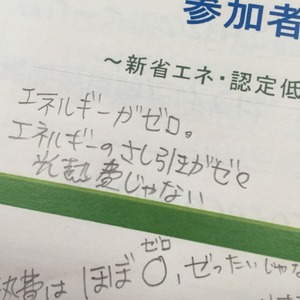 参加者
～新省エネ・認定低
エネルギーがゼロ。
エネルギーのさし引きがゼロ
光熱費じゃない
ゼロ
熱費は ほぼ〇, ぜったいじゃな